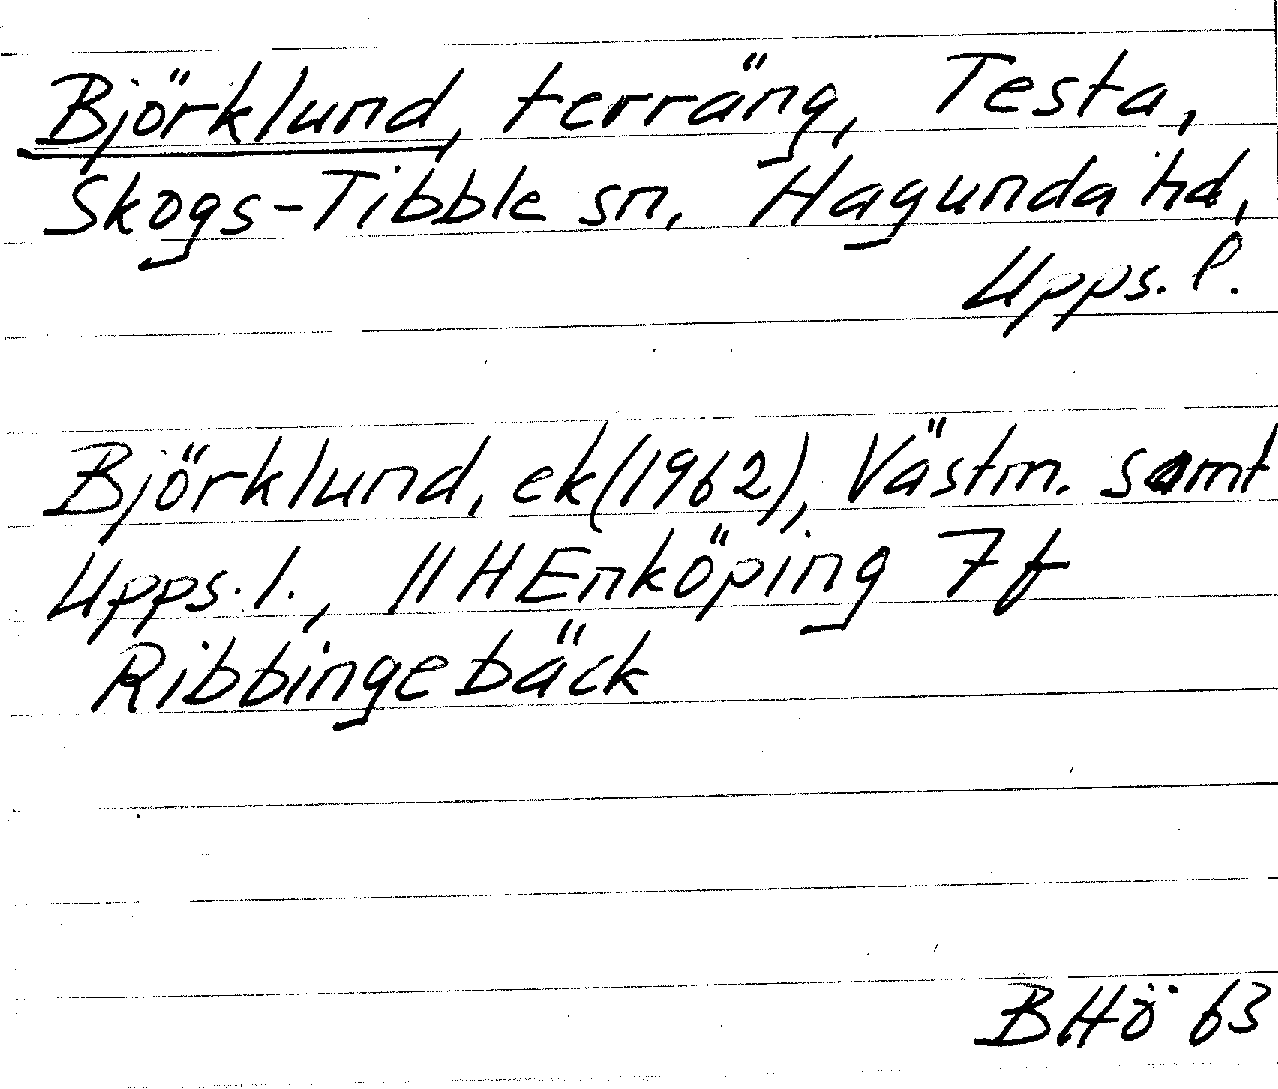 Björklund, terräng, Testa,
Skogs-Tibble sn, Hagunda hd,
Upps. l.
Björklund, ek (1962), Västm. samt
Upps. l., 11 H Enköping 7 f
Ribbingebäck
BHö 63